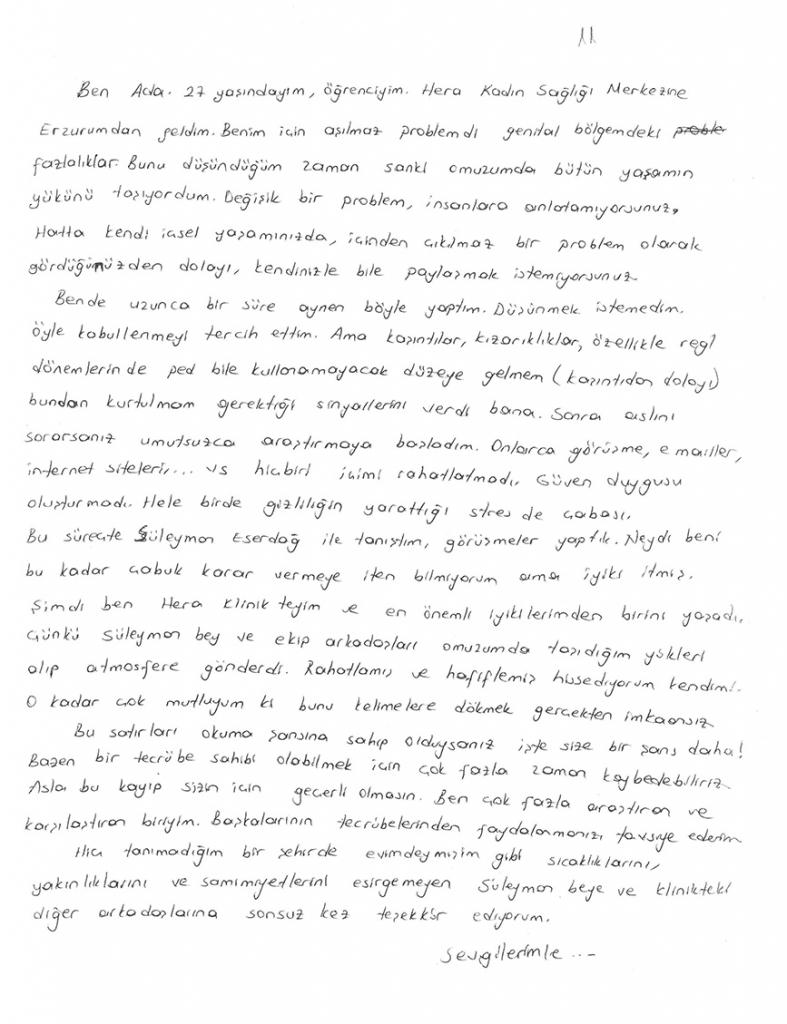 11
Ben Ada. 27 yaşındayım, öğrenciyim. Hera Kadın Sağlığı Merkezine
Erzurumdan geldim. Benim için aşılmaz problemdi genital bölgemdeki proble
fazlalıklar. Bunu düşündüğüm zaman sanki omuzumda bütün yaşamın
yükünü taşıyordum. Değişik bir problem, insanlara anlatamıyorsunuz,
Hatta kendi içsel yaşamınızda, içinden çıkılmaz bir problem olarak
gördüğünüzden dolayı, kendinizle bile paylaşmak istemiyorsunuz
Bende uzunca bir süre aynen böyle yaptım. Düşünmek istemedim.
öyle kabullenmeyi tercih ettim. Ama kaşıntılar, kızarıklıklar, özellikle regl
dönemlerin de ped bile kullanamayacak düzeye gelmem (kaşıntıdan dolayı)
bundan kurtulmam gerektiği sinyallerini verdi bana. Sonra aslını
sorarsanız umutsuzca araştırmaya başladım. Onlarca görüşme, e mailler,
internet siteleri,... vs hiçbiri içimi rahatlatmadı, Güven duygusu
oluşturmadı. Hele birde gizliliğin yarattığı stres de cabası.
Bu süreçte Süleyman Eserdağ ile tanıştım, görüşmeler yaptık. Neydi beni
bu kadar çabuk karar vermeye iten bilmiyorum ama iyiki itmiş.
Şimdi ben Hera Klinik teyim ve en önemli iyikilerimden birini yaşadı.
Çünkü Süleyman bey ve ekip arkadaşları omuzumda taşıdığım yükleri
alıp atmosfere gönderdi. Rahatlamış ve hafiflemiş hissediyorum kendimi.
O kadar çok mutluyum ki bunu kelimelere dökmek gerçekten imkansız
Bu satırları okuma şansına sahip olduysanız işte size bir şans daha!
Bazen bir tecrübe sahibi olabilmek için çok fazla zaman kaybedebiliriz
Asla bu kayıp sizin için geçerli olmasın. Ben çok fazla araştıran ve
karşılaştıran biriyim. Başkalarının tecrübelerinden faydalanmanızı tavsiye ederim
Hiç tanımadığım bir şehirde evimdeymişim gibi sıcaklıklarını,
yakınlıklarını ve samimiyetlerini esirgemeyen Süleyman beye ve klinikteki
diğer arkadaşlarına sonsuz kez teşekkür ediyorum.
Sevgilerimle ...